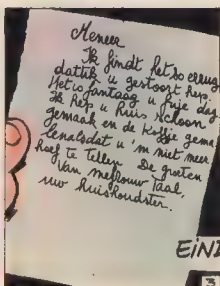 Meneer
Ik findt het so erreug
dattik u gestoort hep.
Het is fantaag u frije dag.
Ik hep u huis schoon
gemaak en de koffje gema
lenalsdat u 'm niet meer
hoef te tellen. De groeten
van mefrouw Taal.
uw huishoudster.
EINDE
3